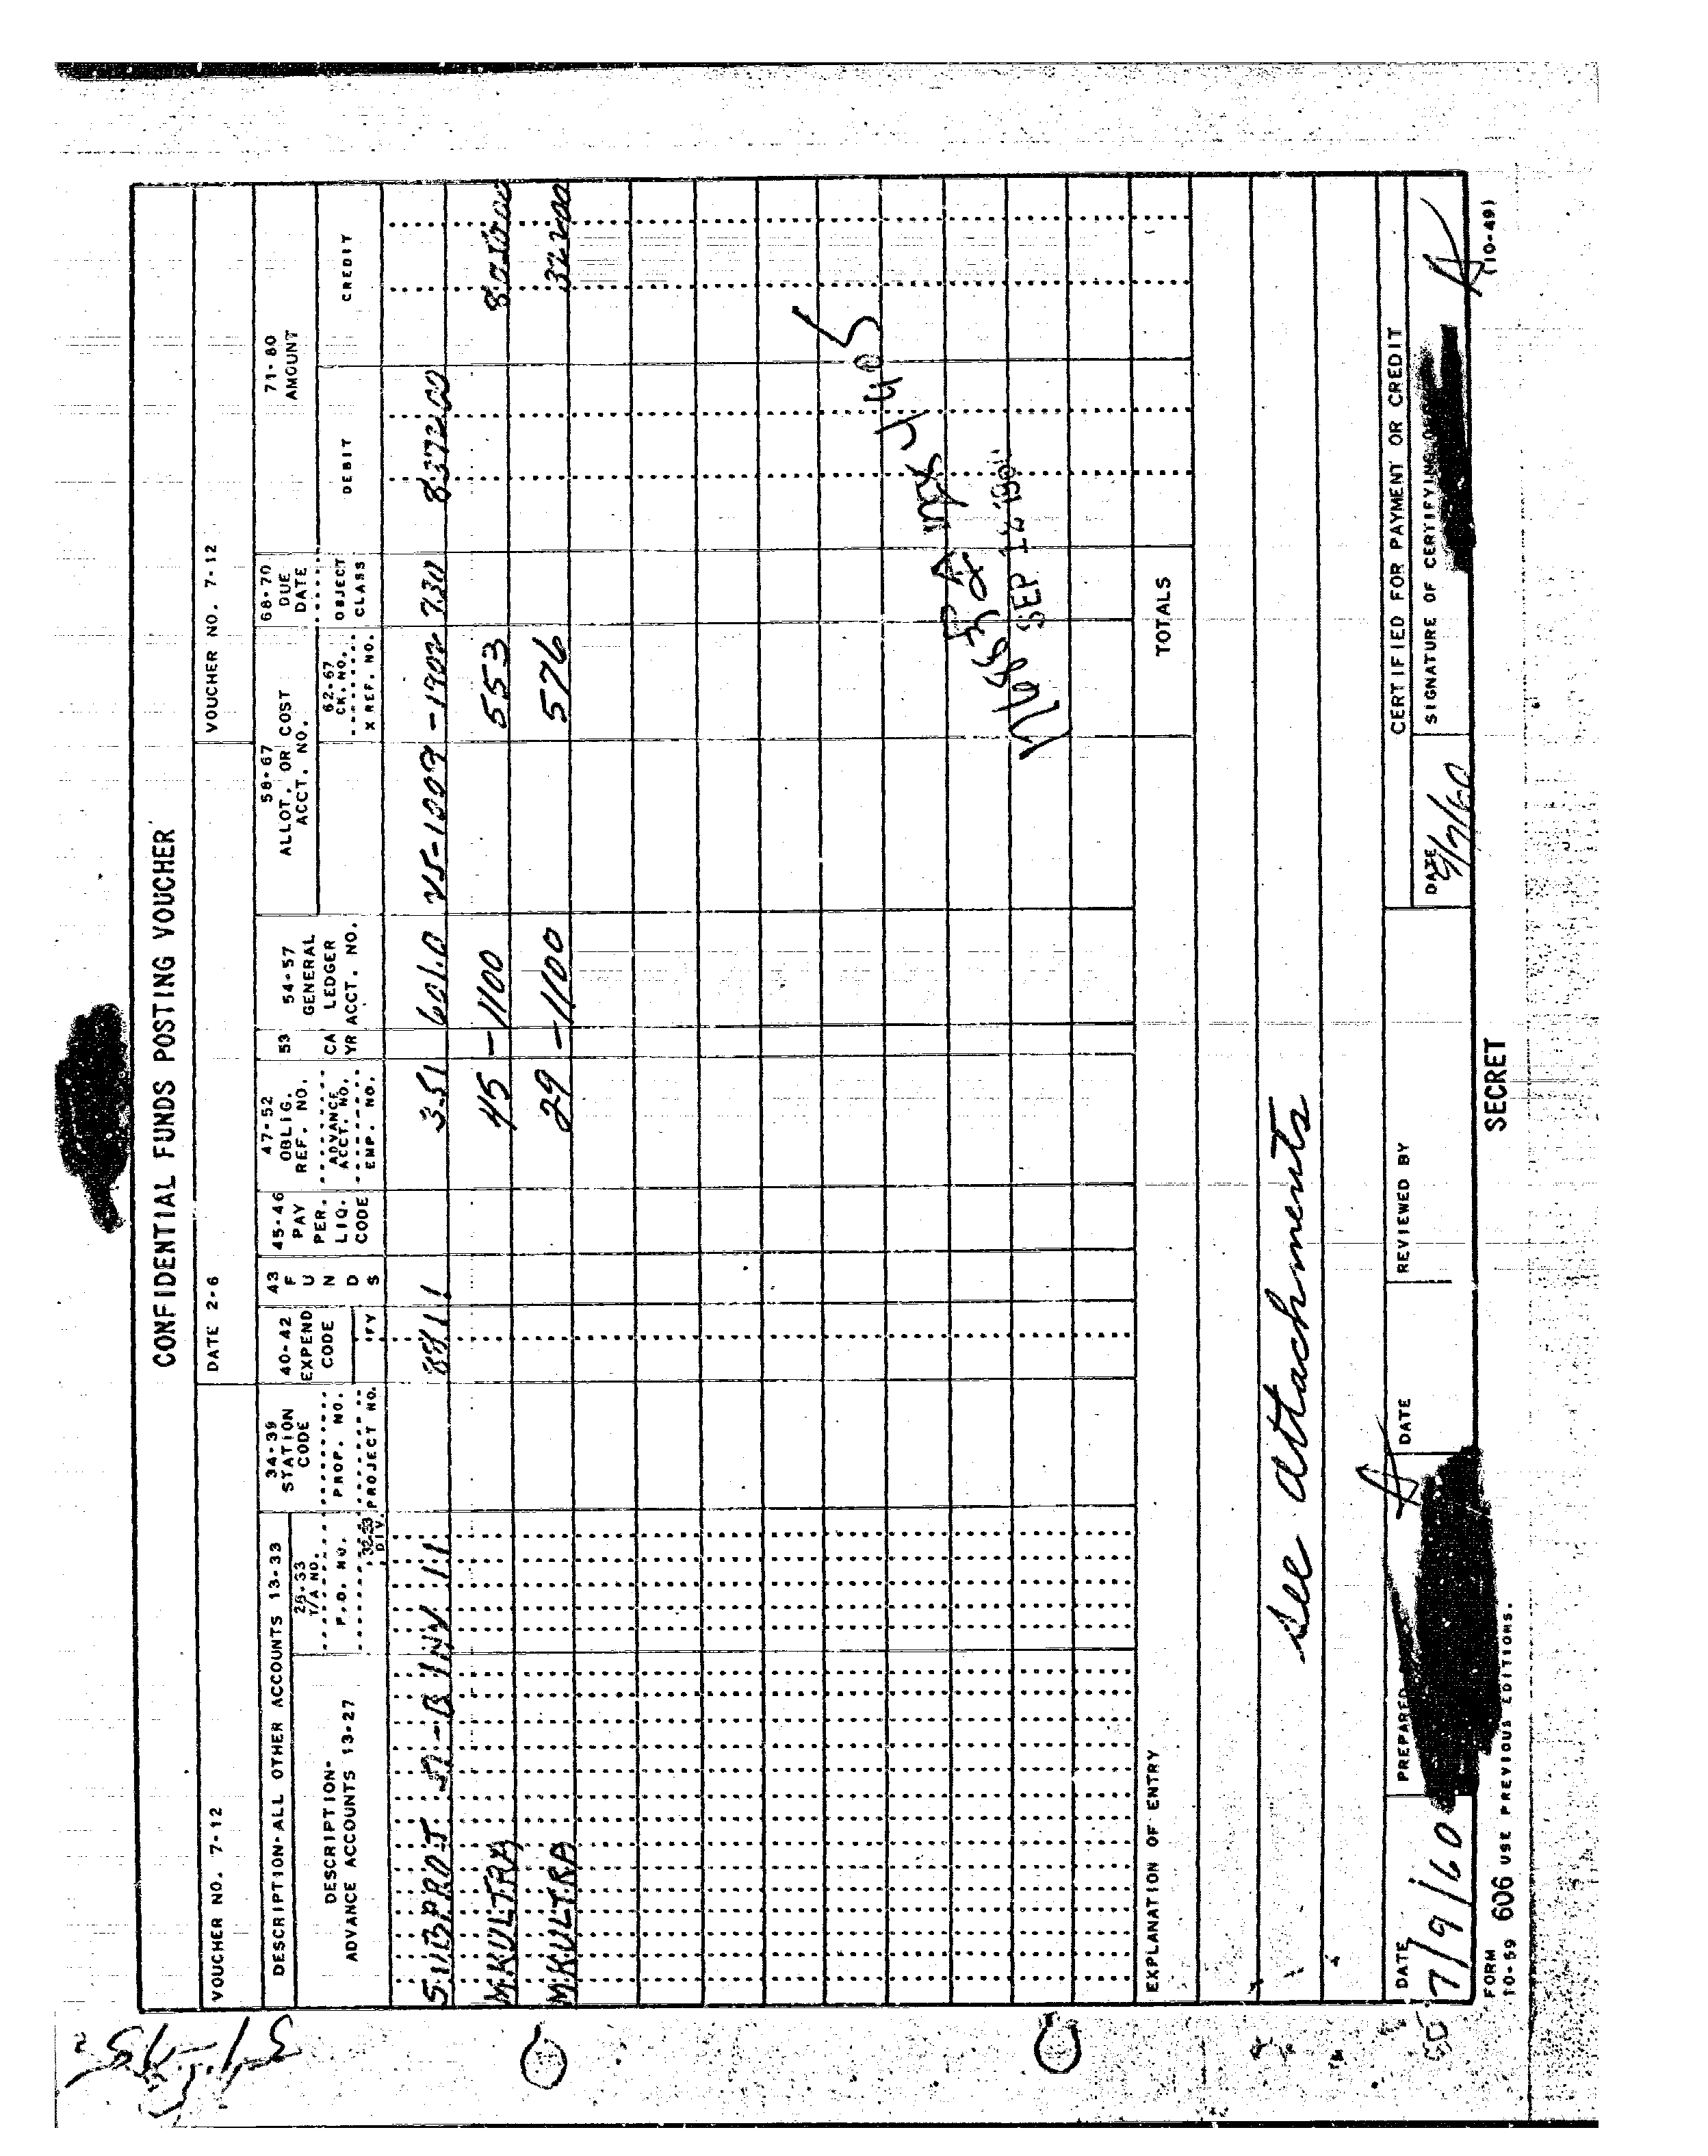 CONFIDENTIAL FUNDS POSTING VOUCHER
VOUCHER NO. 7-12
DATE 2-6
VOUCHER NO. 7-12
DESCRIPTION-ALL OTHER ACCOUNTS 13-33
DESCRIPTION-
ADVANCE ACCOUNTS 13-27
T/A NO.
P.O. NO.
DIV.
34-39
STATION
CODE
PROP. NO.
PROJECT NO.
40-42
EXPEND
CODE
FY
43
F
U
N
D
S
45-46
PAY
PER.
LIQ.
CODE
47-52
OBLIG.
REF. NO.
ADVANCE
ACCT. NO.
EMP. NO.
53
CA
YR
54-57
GENERAL
LEDGER
ACCT. NO.
58-67
ALLOT. OR COST
ACCT. NO.
62-67
CK. NO.
X REF. NO.
68-70
DUE
DATE
OBJECT
CLASS
71-80
AMOUNT
DEBIT
CREDIT
SUBPROJ INV 11 351 601.0 -1902 730 8372 00
MKULTRA 45 -1100 553
MKULTRA 29 -1100 576 322 00
SEP
TOTALS
EXPLANATION OF ENTRY
See attachments
CERTIFIED FOR PAYMENT OR CREDIT
DATE
7/9/60
PREPARED
DATE
REVIEWED BY
DATE
SIGNATURE OF CERTIFYING
FORM
10-59 606 USE PREVIOUS EDITIONS.
SECRET
(10-49)